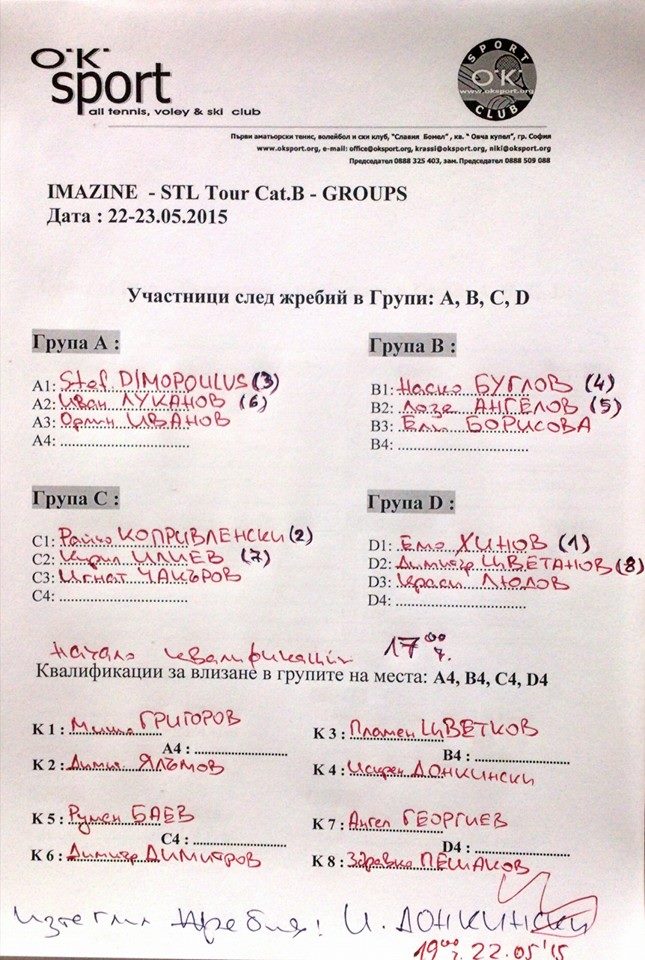 O.K.
sport
all tennis, voley & ski club
SPORT
O.K.
www.oksport.org
CLUB
Първи аматьорски тенис, волейбол и ски клуб, "Славия Бомел" , кв. " Овча купел", гр. София
www.oksport.org, e-mail: office@oksport.org, krassi@oksport.org, niki@oksport.org
Председател 0888 325 403, зам. Председател 0888 509 088
IMAZINE - STL Tour Cat.B - GROUPS
Дата : 22-23.05.2015
Участници след жребий в Групи: A, B, C, D
Група A :
A1: Stef DIMOPOULUS (3)
A2: Иван ЛУКАНОВ (6)
A3: Орлин ИВАНОВ
A4: ........................
Група B :
B1: Наско БУГЛОВ (4)
B2: Лазо АНГЕЛОВ (5)
B3: Ели БОРИСОВА
B4: ........................
Група C :
C1: Райчо КОПРИВЛЕНСКИ (2)
C2: Кирил ИЛИЕВ (7)
C3: Игнат ЧАКЪРОВ
C4: ........................
Група D :
D1: Емо ХИНОВ (1)
D2: Димитър ЦВЕТАНОВ (8)
D3: Краси ЛЮЛОВ
D4: ........................
начало квалификации 17 00 ч.
Квалификации за влизане в групите на места: A4, B4, C4, D4
K 1 : Миша ГРИГОРОВ
A4 : ..................
K 2 : Димчо ЯЛЪМОВ
K 3 : Пламен ЦВЕТКОВ
B4 : ..................
K 4 : Искрен ДОНКИНСКИ
K 5 : Румен БАЕВ
C4 : ..................
K 6 : Димитър ДИМИТРОВ
K 7 : Ангел ГЕОРГИЕВ
D4 : ..................
K 8 : Здравко ПЕШАКОВ
изтеглил жребия: И. ДОНКИНСКИ
19 00 22.05'15